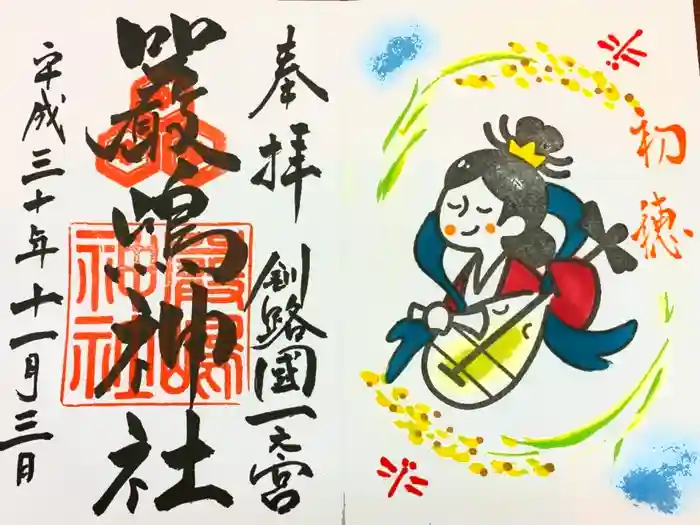 初穂
奉拝
釧路國一之宮
厳島神社
厳嶋神社
平成三十年十一月三日